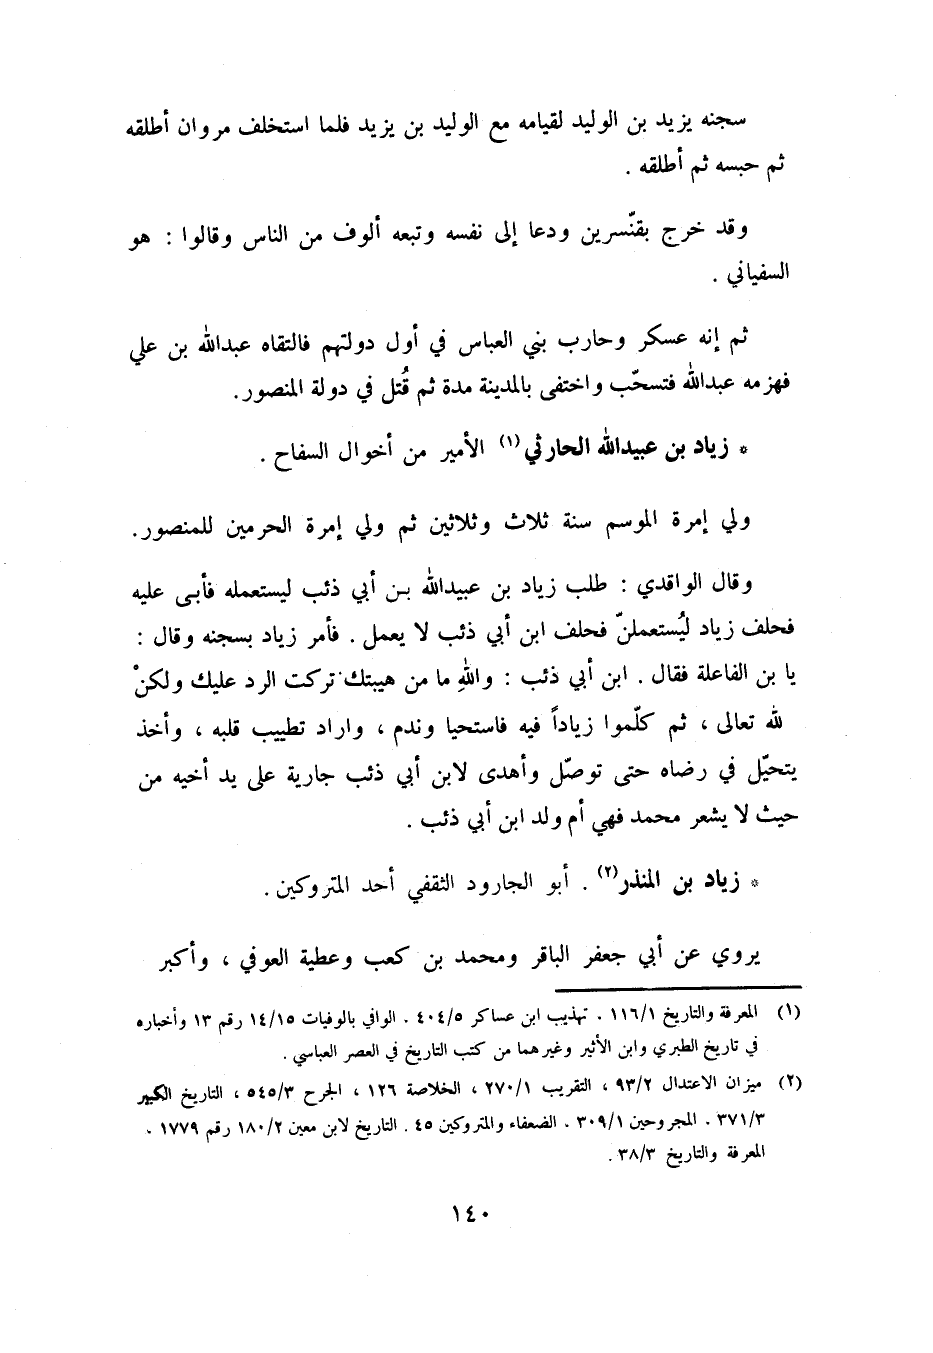 سجنه يزيد بن الوليد لقيامه مع الوليد بن يزيد فلما استخلف مروان أطلقه
ثم حبسه ثم أطلقه .
وقد خرج بقنّسرين ودعا إلى نفسه وتبعه ألوف من الناس وقالوا : هو
السفياني .
ثم إنه عسكر وحارب بني العباس في أول دولتهم فالتقاه عبدالله بن علي
فهزمه عبدالله فتسحّب واختفى بالمدينة مدة ثم قُتل في دولة المنصور.
* زياد بن عبيدالله الحارثي (١) الأمير من أخوال السفاح .
ولي إمرة الموسم سنة ثلاث وثلاثين ثم ولي إمرة الحرمين للمنصور.
وقال الواقدي : طلب زياد بن عبيدالله بن أبي ذئب ليستعمله فأبى عليه
فحلف زياد ليُستعملنّ فحلف ابن أبي ذئب لا يعمل . فأمر زياد بسجنه وقال :
يا بن الفاعلة فقال . ابن أبي ذئب : واللهِ ما من هيبتك تركت الرد عليك ولكنْ
لله تعالى ، ثم كلّموا زياداً فيه فاستحيا وندم ، واراد تطييب قلبه ، وأخذ
يتحيّل في رضاه حتى توصّل وأهدى لابن أبي ذئب جارية على يد أخيه من
حيث لا يشعر محمد فهي أم ولد ابن أبي ذئب .
* زياد بن المنذر(٢) . أبو الجارود الثقفي أحد المتروكين .
يروي عن أبي جعفر الباقر ومحمد بن كعب وعطية العوفي ، وأكبر
(١) المعرفة والتاريخ ١١٦/١ . تهذيب ابن عساكر ٤٠٤/٥ . الوافي بالوفيات ١٤/١٥ رقم ١٣ وأخباره
في تاريخ الطبري وابن الأثير وغيرهما من كتب التاريخ في العصر العباسي .
(٢) ميزان الاعتدال ٩٣/٢ ، التقريب ٢٧٠/١ ، الخلاصة ١٢٦ ، الجرح ٥٤٥/٣ ، التاريخ الكبير
٣٧١/٣ . المجروحين ٣٠٩/١ . الضعفاء والمتروكين ٤٥ . التاريخ لابن معين ١٨٠/٢ رقم ١٧٧٩ .
المعرفة والتاريخ ٣٨/٣ .
١٤٠